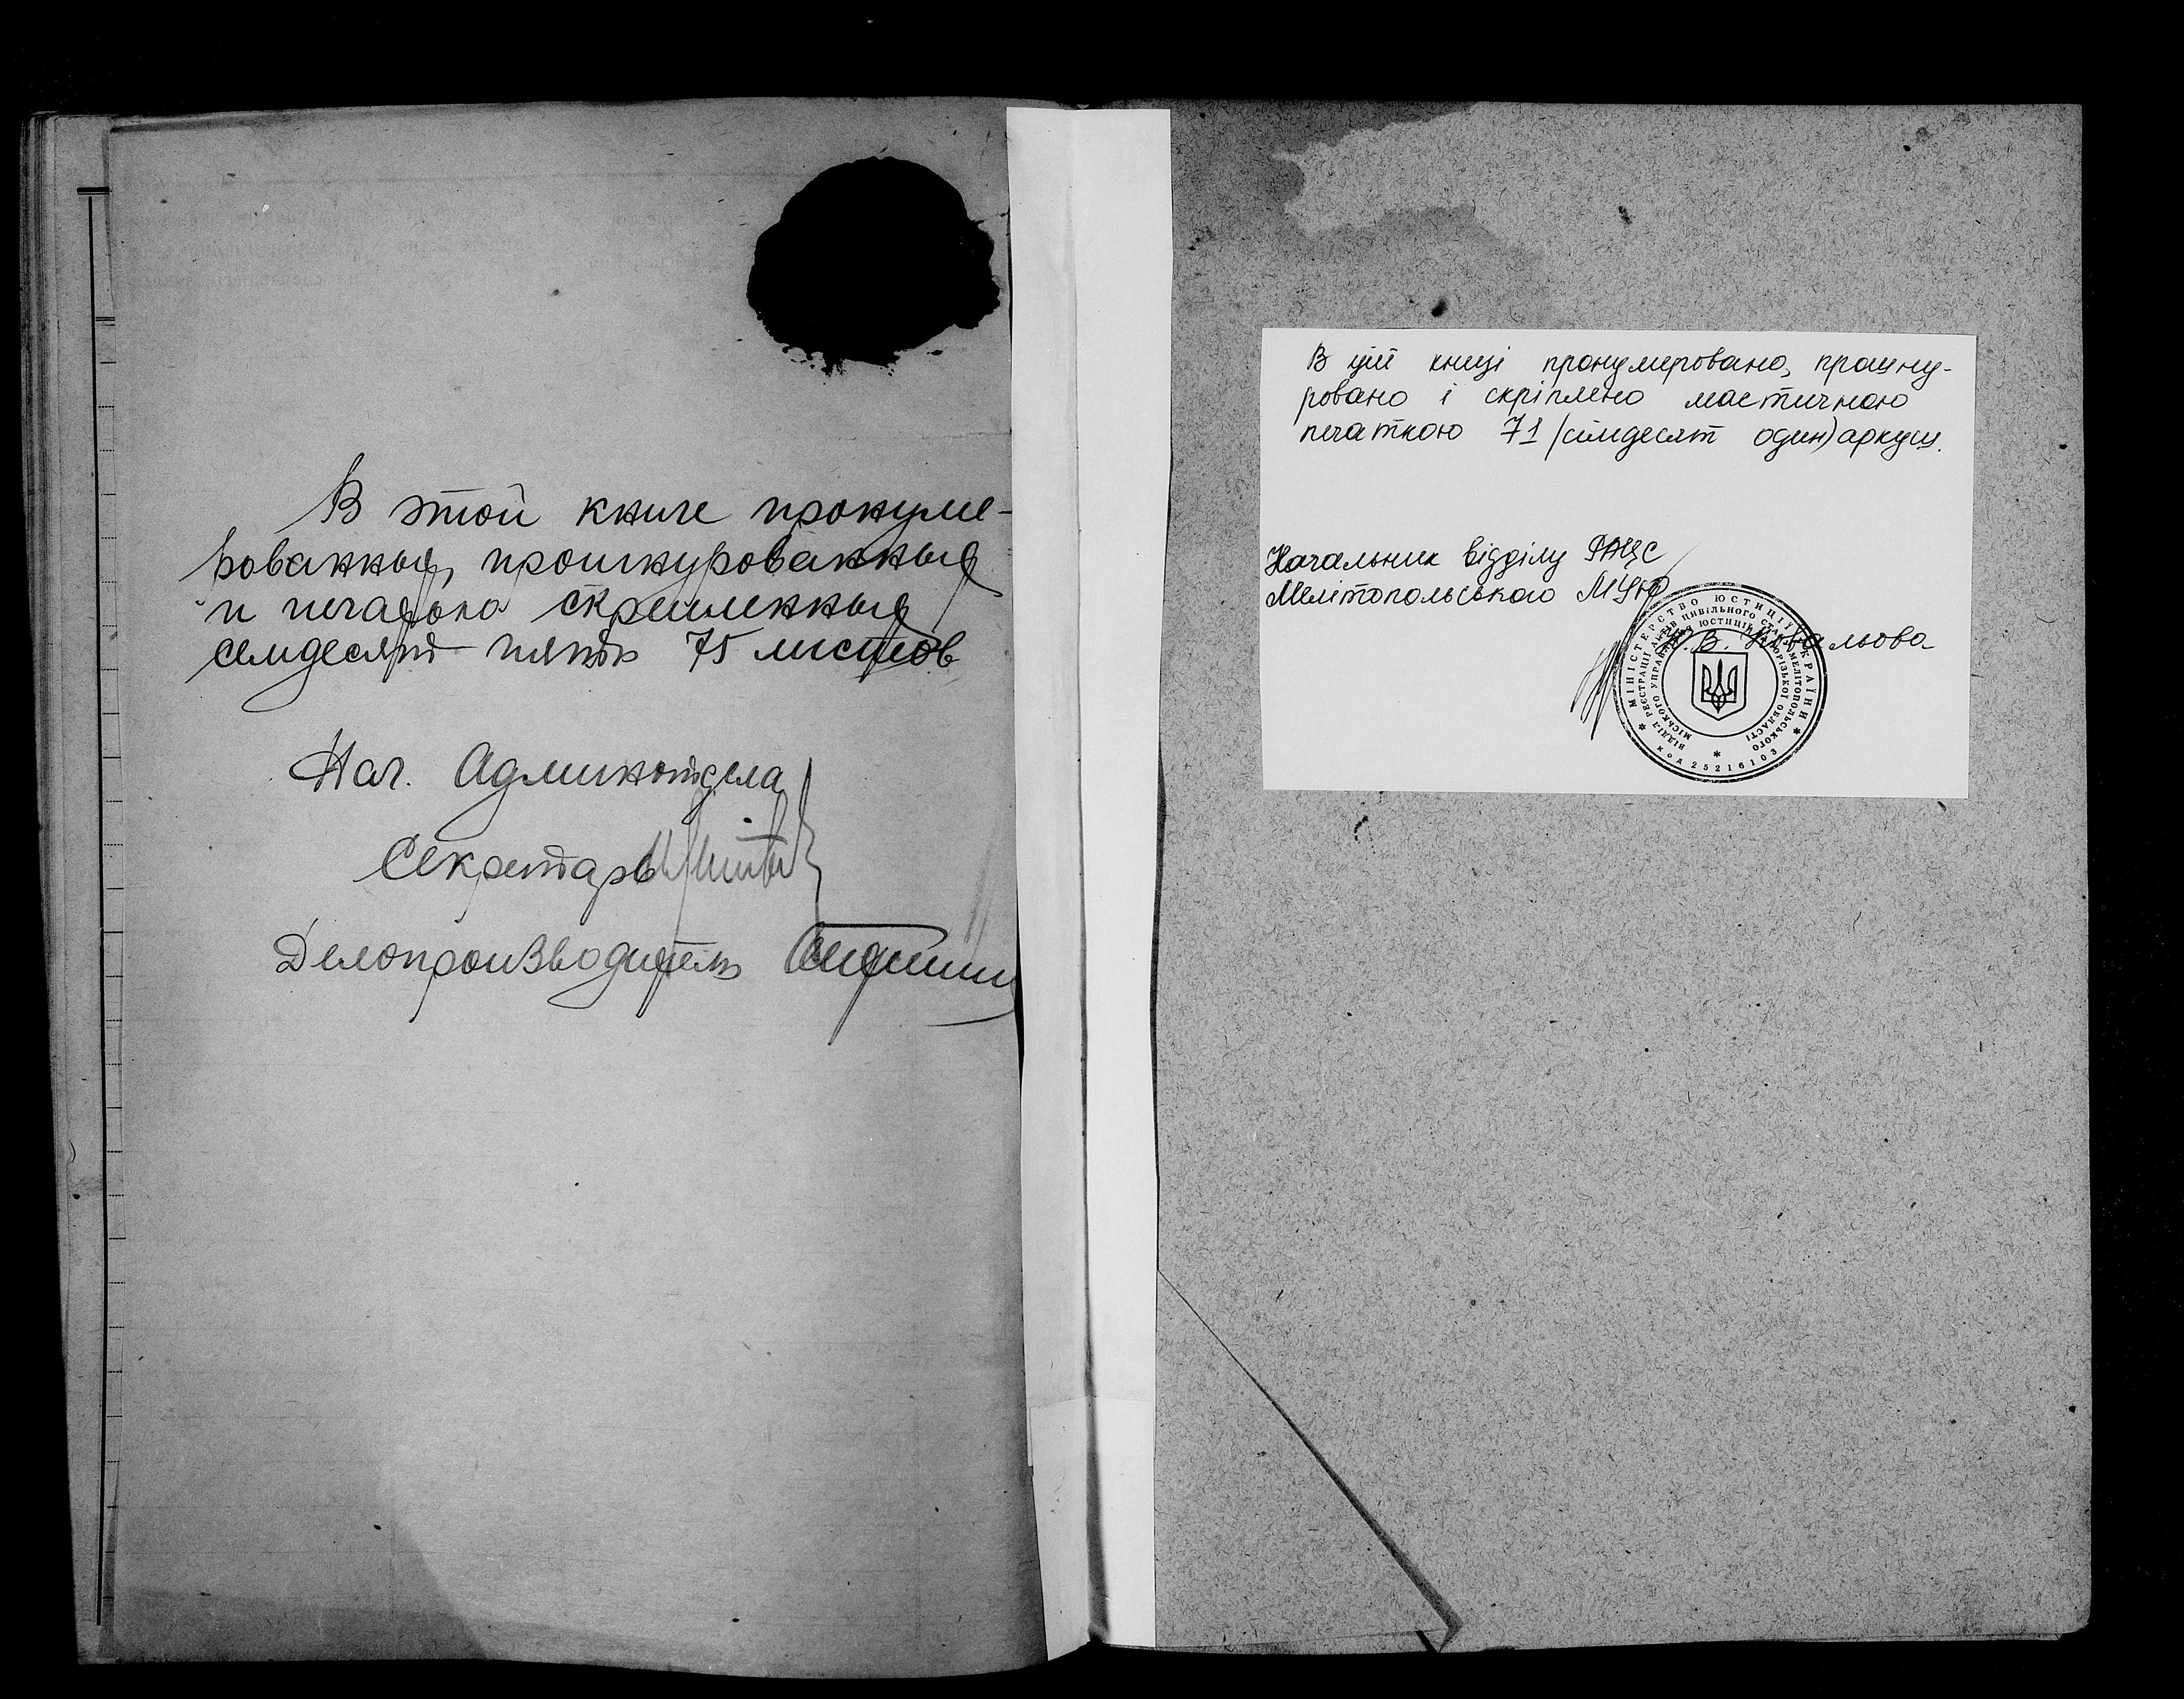 В этой книге пронуме-
рованных, прошнурованных
и печатью скрепленных
семдесят пять 75 листов
Нач. Админотдела
Секретарь
Делопроизводитель
В цій книзі пронумеровано, прошну-
ровано і скріплено мастичною
печаткою 71 (сімдесят один) аркуш.
Начальник відділу РАЦС
Мелітопольського МУЮ
В. Ковальова
МІНІСТЕРСТВО ЮСТИЦІЇ УКРАЇНИ
ВІДДІЛ РЕЄСТРАЦІЇ АКТІВ ЦИВІЛЬНОГО СТАНУ МЕЛІТОПОЛЬСЬКОГО
МІСЬКОГО УПРАВЛІННЯ ЮСТИЦІЇ ЗАПОРІЗЬКОЇ ОБЛАСТІ
код 25216103